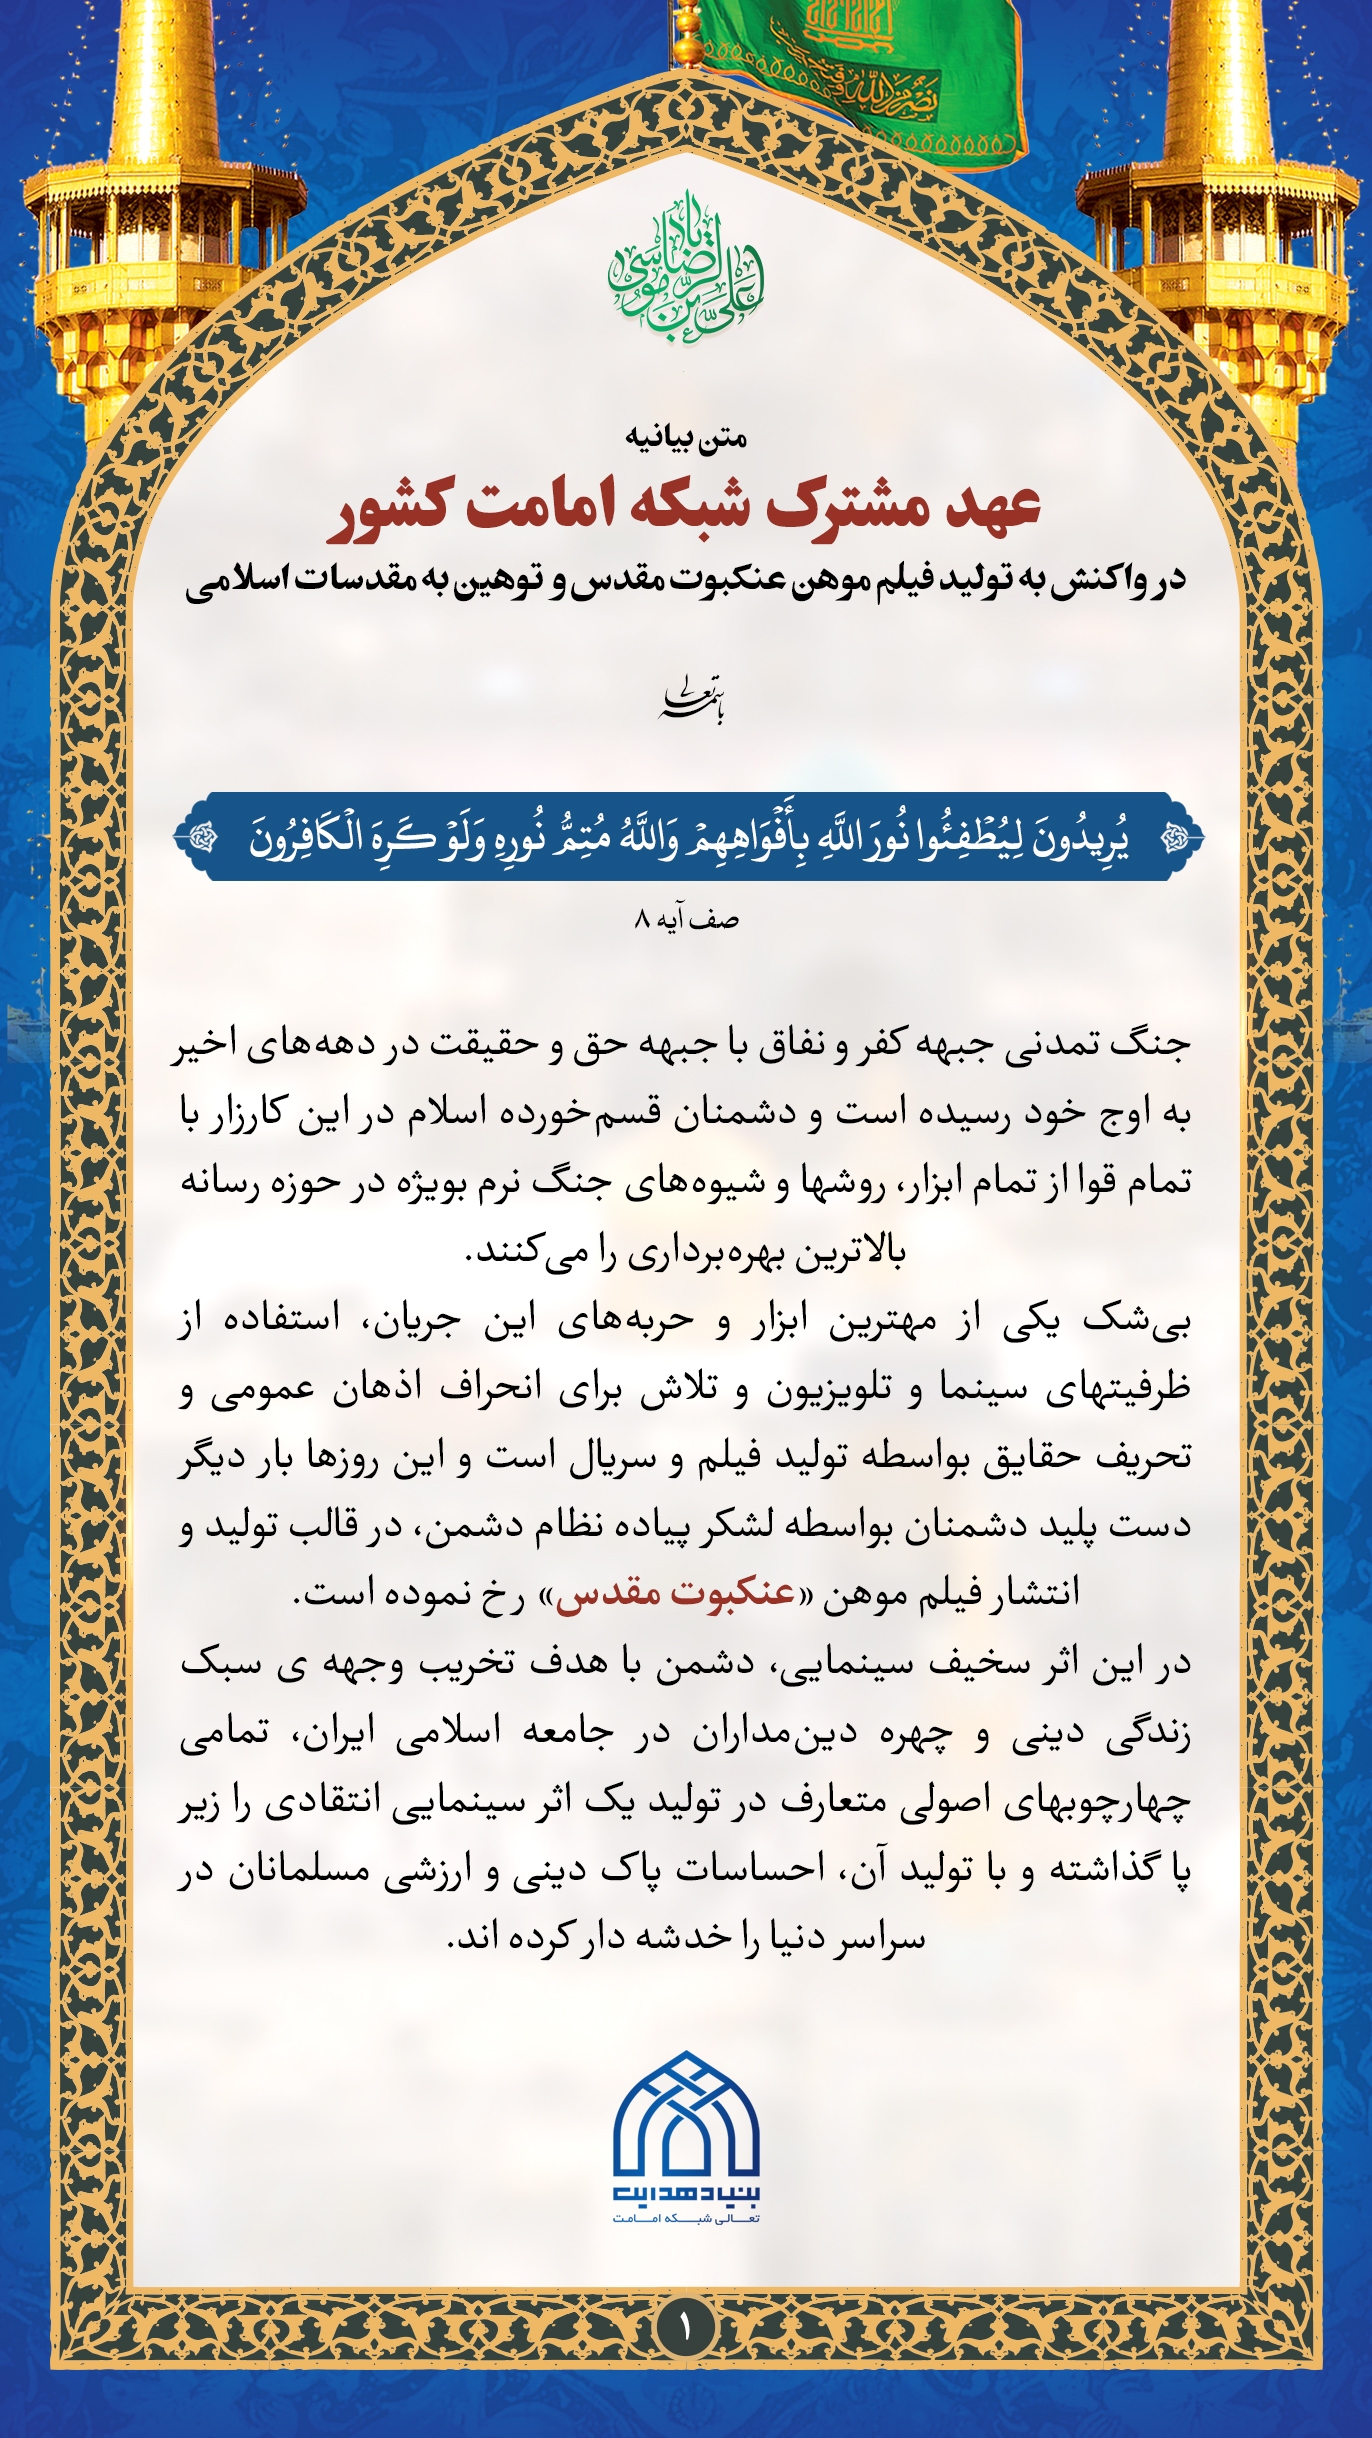 نصر من الله
یا علی بن موسی الرضا
متن بیانیه
عهد مشترک شبکه امامت کشور
در واکنش به تولید فیلم موهن عنکبوت مقدس و توهین به مقدسات اسلامی
باسمه تعالی
يُرِيدُونَ لِيُطْفِئُوا نُورَ اللَّهِ بِأَفْوَاهِهِمْ وَاللَّهُ مُتِمُّ نُورِهِ وَلَوْ كَرِهَ الْكَافِرُونَ
صف آیه ۸
جنگ تمدنی جبهه کفر و نفاق با جبهه حق و حقیقت در دهه‌های اخیر
به اوج خود رسیده است و دشمنان قسم‌خورده اسلام در این کارزار با
تمام قوا از تمام ابزار، روشها و شیوه‌های جنگ نرم بویژه در حوزه رسانه
بالاترین بهره‌برداری را می‌کنند.
بی‌شک یکی از مهترین ابزار و حربه‌های این جریان، استفاده از
ظرفیتهای سینما و تلویزیون و تلاش برای انحراف اذهان عمومی و
تحریف حقایق بواسطه تولید فیلم و سریال است و این روزها بار دیگر
دست پلید دشمنان بواسطه لشکر پیاده نظام دشمن، در قالب تولید و
انتشار فیلم موهن «عنکبوت مقدس» رخ نموده است.
در این اثر سخیف سینمایی، دشمن با هدف تخریب وجهه ی سبک
زندگی دینی و چهره دین‌مداران در جامعه اسلامی ایران، تمامی
چهارچوبهای اصولی متعارف در تولید یک اثر سینمایی انتقادی را زیر
پا گذاشته و با تولید آن، احساسات پاک دینی و ارزشی مسلمانان در
سراسر دنیا را خدشه دار کرده اند.
بنیاد هدایت
تعالی شبکه امامت
۱